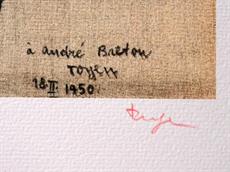 à andré Breton
Toyen
18 II 1950.